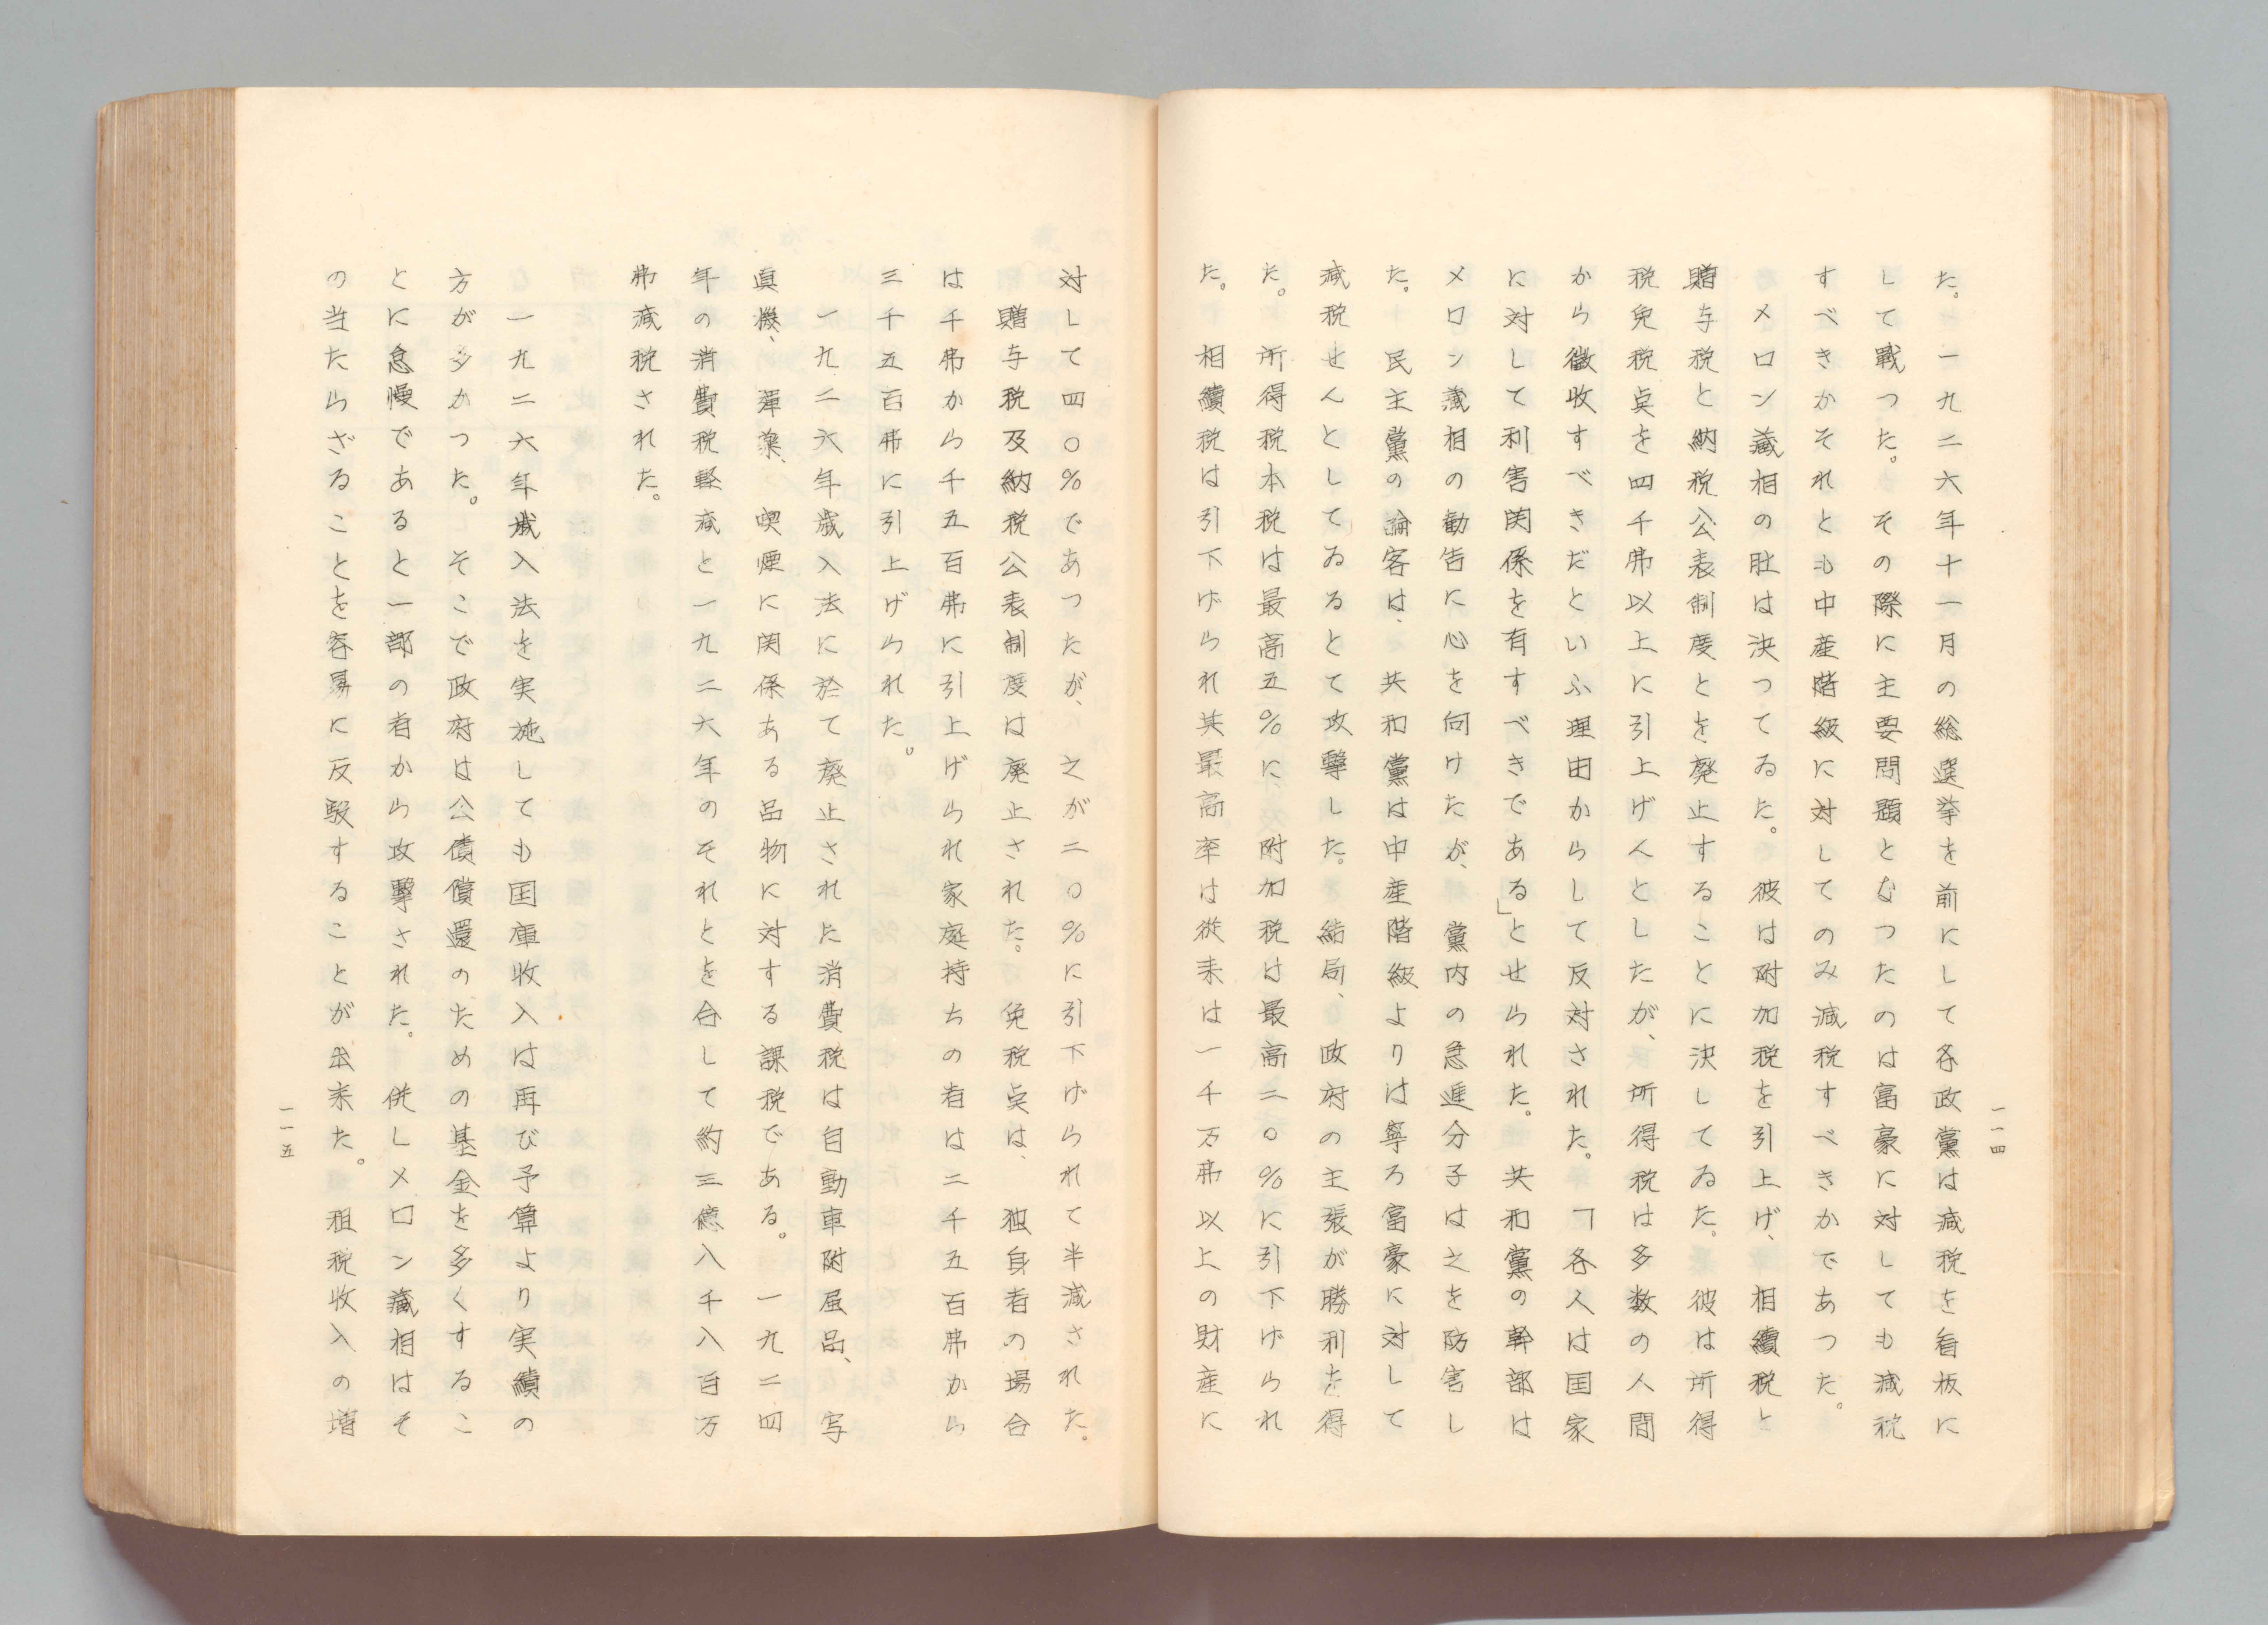 一一四
た。一九二六年十一月の総選挙を前にして各政黨は減税を看板に
して戰つた。その際に主要問題となつたのは富豪に対しても減税
すべきかそれとも中産階級に対してのみ減税すべきかであつた。
メロン藏相の肚は決つてゐた。彼は附加税を引上げ、相續税と
贈与税と納税公表制度とを廃止することに決してゐた。彼は所得
税免税点を四千弗以上に引上げんとしたが、所得税は多数の人間
から徴收すべきだといふ理由からして反対された。「各人は国家
に対して利害関係を有すべきである」とせられた。共和黨の幹部は
メロン藏相の勧告に心を向けたが、黨内の急進分子は之を防害し
た。民主黨の論客は、共和黨は中産階級よりは寧ろ富豪に対して
減税せんとしてゐるとて攻擊した。結局、政府の主張が勝利を得
た。所得税本税は最高五％に、附加税は最高二〇％に引下げられ
た。相續税は引下げられ其最高率は従来は一千万弗以上の財産に
対して四〇％であつたが、之が二〇％に引下げられて半減された。
贈与税及納税公表制度は廃止された。免税点は、独身者の場合
は千弗から千五百弗に引上げられ家庭持ちの者は二千五百弗から
三千五百弗に引上げられた。
一九二六年歳入法に於て廃止された消費税は自動車附属品、写
真機、彈薬、喫煙に関係ある品物に対する課税である。一九二四
年の消費税軽減と一九二六年のそれとを合して約三億八千八百万
弗減税された。
一九二六年歳入法を実施しても国庫收入は再び予算より実績の
方が多かつた。そこで政府は公債償還のための基金を多くするこ
とに怠慢であると一部の者から攻擊された。併しメロン藏相はそ
の当たらざることを容易に反駁することが出来た。租税收入の増
一一五